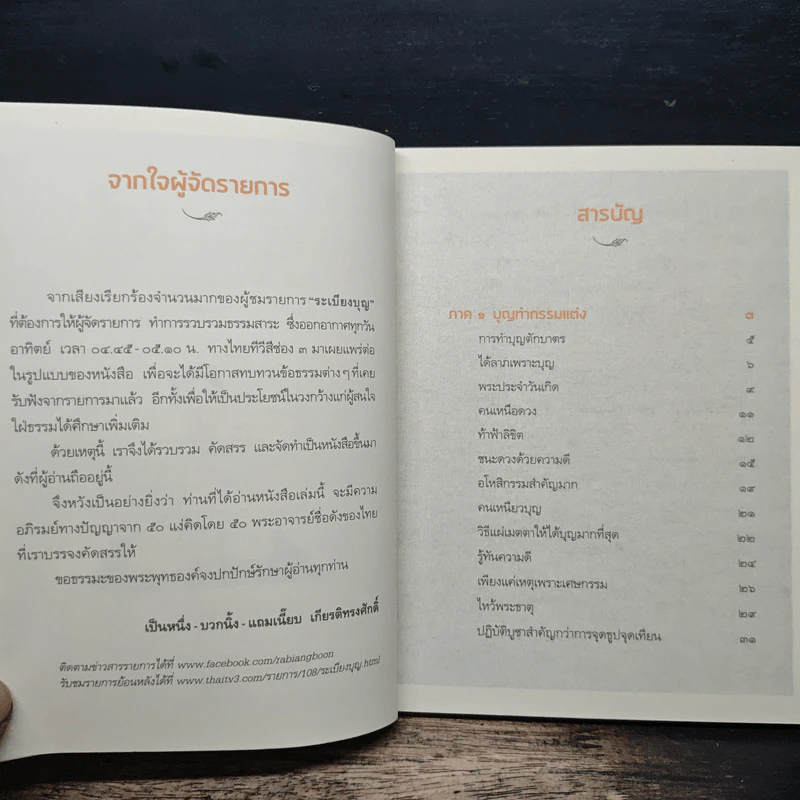 จากใจผู้จัดรายการ
จากเสียงเรียกร้องจำนวนมากของผู้ชมรายการ “ระเบียงบุญ”
ที่ต้องการให้ผู้จัดรายการ ทำการรวบรวมธรรมสาระ ซึ่งออกอากาศทุกวัน
อาทิตย์ เวลา ๐๔.๔๕-๐๕.๑๐ น. ทางไทยทีวีสีช่อง ๓ มาเผยแพร่ต่อ
ในรูปแบบของหนังสือ เพื่อจะได้มีโอกาสทบทวนข้อธรรมต่างๆ ที่เคย
รับฟังจากรายการมาแล้ว อีกทั้งเพื่อให้เป็นประโยชน์ในวงกว้างแก่ผู้สนใจ
ใฝ่ธรรมได้ศึกษาเพิ่มเติม
ด้วยเหตุนี้ เราจึงได้รวบรวม คัดสรร และจัดทำเป็นหนังสือขึ้นมา
ดังที่ผู้อ่านถืออยู่นี้
จึงหวังเป็นอย่างยิ่งว่า ท่านที่ได้อ่านหนังสือเล่มนี้ จะมีความ
อภิรมย์ทางปัญญาจาก ๕๐ แง่คิดโดย ๕๐ พระอาจารย์ชื่อดังของไทย
ที่เราบรรจงคัดสรรให้
ขอธรรมะของพระพุทธองค์จงปกปักษ์รักษาผู้อ่านทุกท่าน
เป็นหนึ่ง - บวกนิ้ง - แถมเนี๊ยบ เกียรติทรงศักดิ์
ติดตามข่าวสารรายการได้ที่ www.facebook.com/rabiangboon
รับชมรายการย้อนหลังได้ที่ www.thaitv3.com/รายการ/108/ระเบียงบุญ.html
สารบัญ
ภาค ๑ บุญทำกรรมแต่ง ๓
การทำบุญตักบาตร ๕
ได้ลาภเพราะบุญ ๖
พระประจำวันเกิด ๙
คนเหนือดวง ๑๑
ท้าฟ้าลิขิต ๑๒
ชนะดวงด้วยความดี ๑๕
อโหสิกรรมสำคัญมาก ๑๙
คนเหนียวบุญ ๒๑
วิธีแผ่เมตตาให้ได้บุญมากที่สุด ๒๒
รู้ทันความดี ๒๔
เพียงแค่เหตุเพราะเศษกรรม ๒๖
ไหว้พระธาตุ ๒๙
ปฏิบัติบูชาสำคัญกว่าการจุดธูปจุดเทียน ๓๑